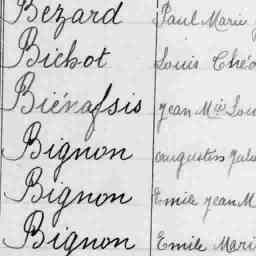 Bezard Paul Marie
Bichot Louis Théo
Jean Mie Lou
Bignon augustin Jule
Bignon Emile Jean M
Bignon Emile Mari